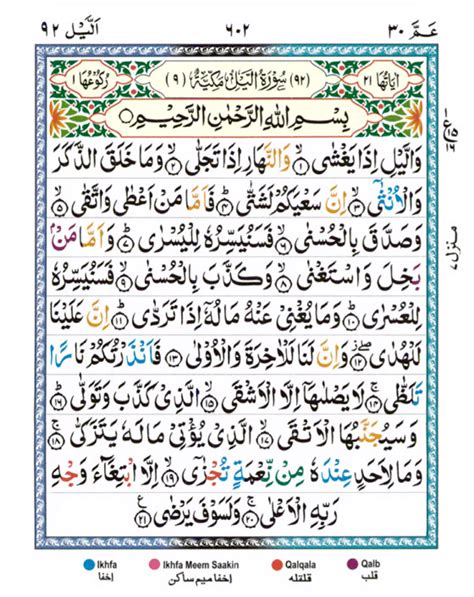 الَّيْل ٩٢ ٦٠٢ عَمَّ ٣٠
اٰيَاتُهَا ٢١ (٩٢) سُوْرَةُ الَّيْلِ مَكِّيَّةٌ (٩) رُكُوْعُهَا ١
بِسْمِ اللّٰهِ الرَّحْمٰنِ الرَّحِيْمِ
وَالَّيْلِ اِذَا يَغْشٰى ۙ﴿١﴾ وَالنَّهَارِ اِذَا تَجَلّٰى ۙ﴿٢﴾ وَمَا خَلَقَ الذَّكَرَ
وَالْاُنْثٰٓى ۙ﴿٣﴾ اِنَّ سَعْيَكُمْ لَشَتّٰى ؕ﴿٤﴾ فَاَمَّا مَنْ اَعْطٰى وَاتَّقٰى ۙ﴿٥﴾
وَصَدَّقَ بِالْحُسْنٰى ۙ﴿٦﴾ فَسَنُيَسِّرُهٗ لِلْيُسْرٰى ؕ﴿٧﴾ وَاَمَّا مَنْۢ
بَخِلَ وَاسْتَغْنٰى ۙ﴿٨﴾ وَكَذَّبَ بِالْحُسْنٰى ۙ﴿٩﴾ فَسَنُيَسِّرُهٗ
لِلْعُسْرٰى ؕ﴿١٠﴾ وَمَا يُغْنِيْ عَنْهُ مَالُهٗٓ اِذَا تَرَدّٰى ؕ﴿١١﴾ اِنَّ عَلَيْنَا
لَلْهُدٰى ۖ﴿١٢﴾ وَاِنَّ لَنَا لَلْاٰخِرَةَ وَالْاُوْلٰى ﴿١٣﴾ فَاَنْذَرْتُكُمْ نَارًا
تَلَظّٰى ۚ﴿١٤﴾ لَا يَصْلٰىهَآ اِلَّا الْاَشْقَى ۙ﴿١٥﴾ الَّذِيْ كَذَّبَ وَتَوَلّٰى ؕ﴿١٦﴾
وَسَيُجَنَّبُهَا الْاَتْقَى ۙ﴿١٧﴾ الَّذِيْ يُؤْتِيْ مَالَهٗ يَتَزَكّٰى ۚ﴿١٨﴾
وَمَا لِاَحَدٍ عِنْدَهٗ مِنْ نِّعْمَةٍ تُجْزٰٓى ۙ﴿١٩﴾ اِلَّا ابْتِغَآءَ وَجْهِ
رَبِّهِ الْاَعْلٰى ۚ﴿٢٠﴾ وَلَسَوْفَ يَرْضٰى ﴿٢١﴾
منزل ٧
Ikhfa Ikhfa Meem Saakin Qalqala Qalb
إخفا إخفا ميم ساكن قلقله قلب